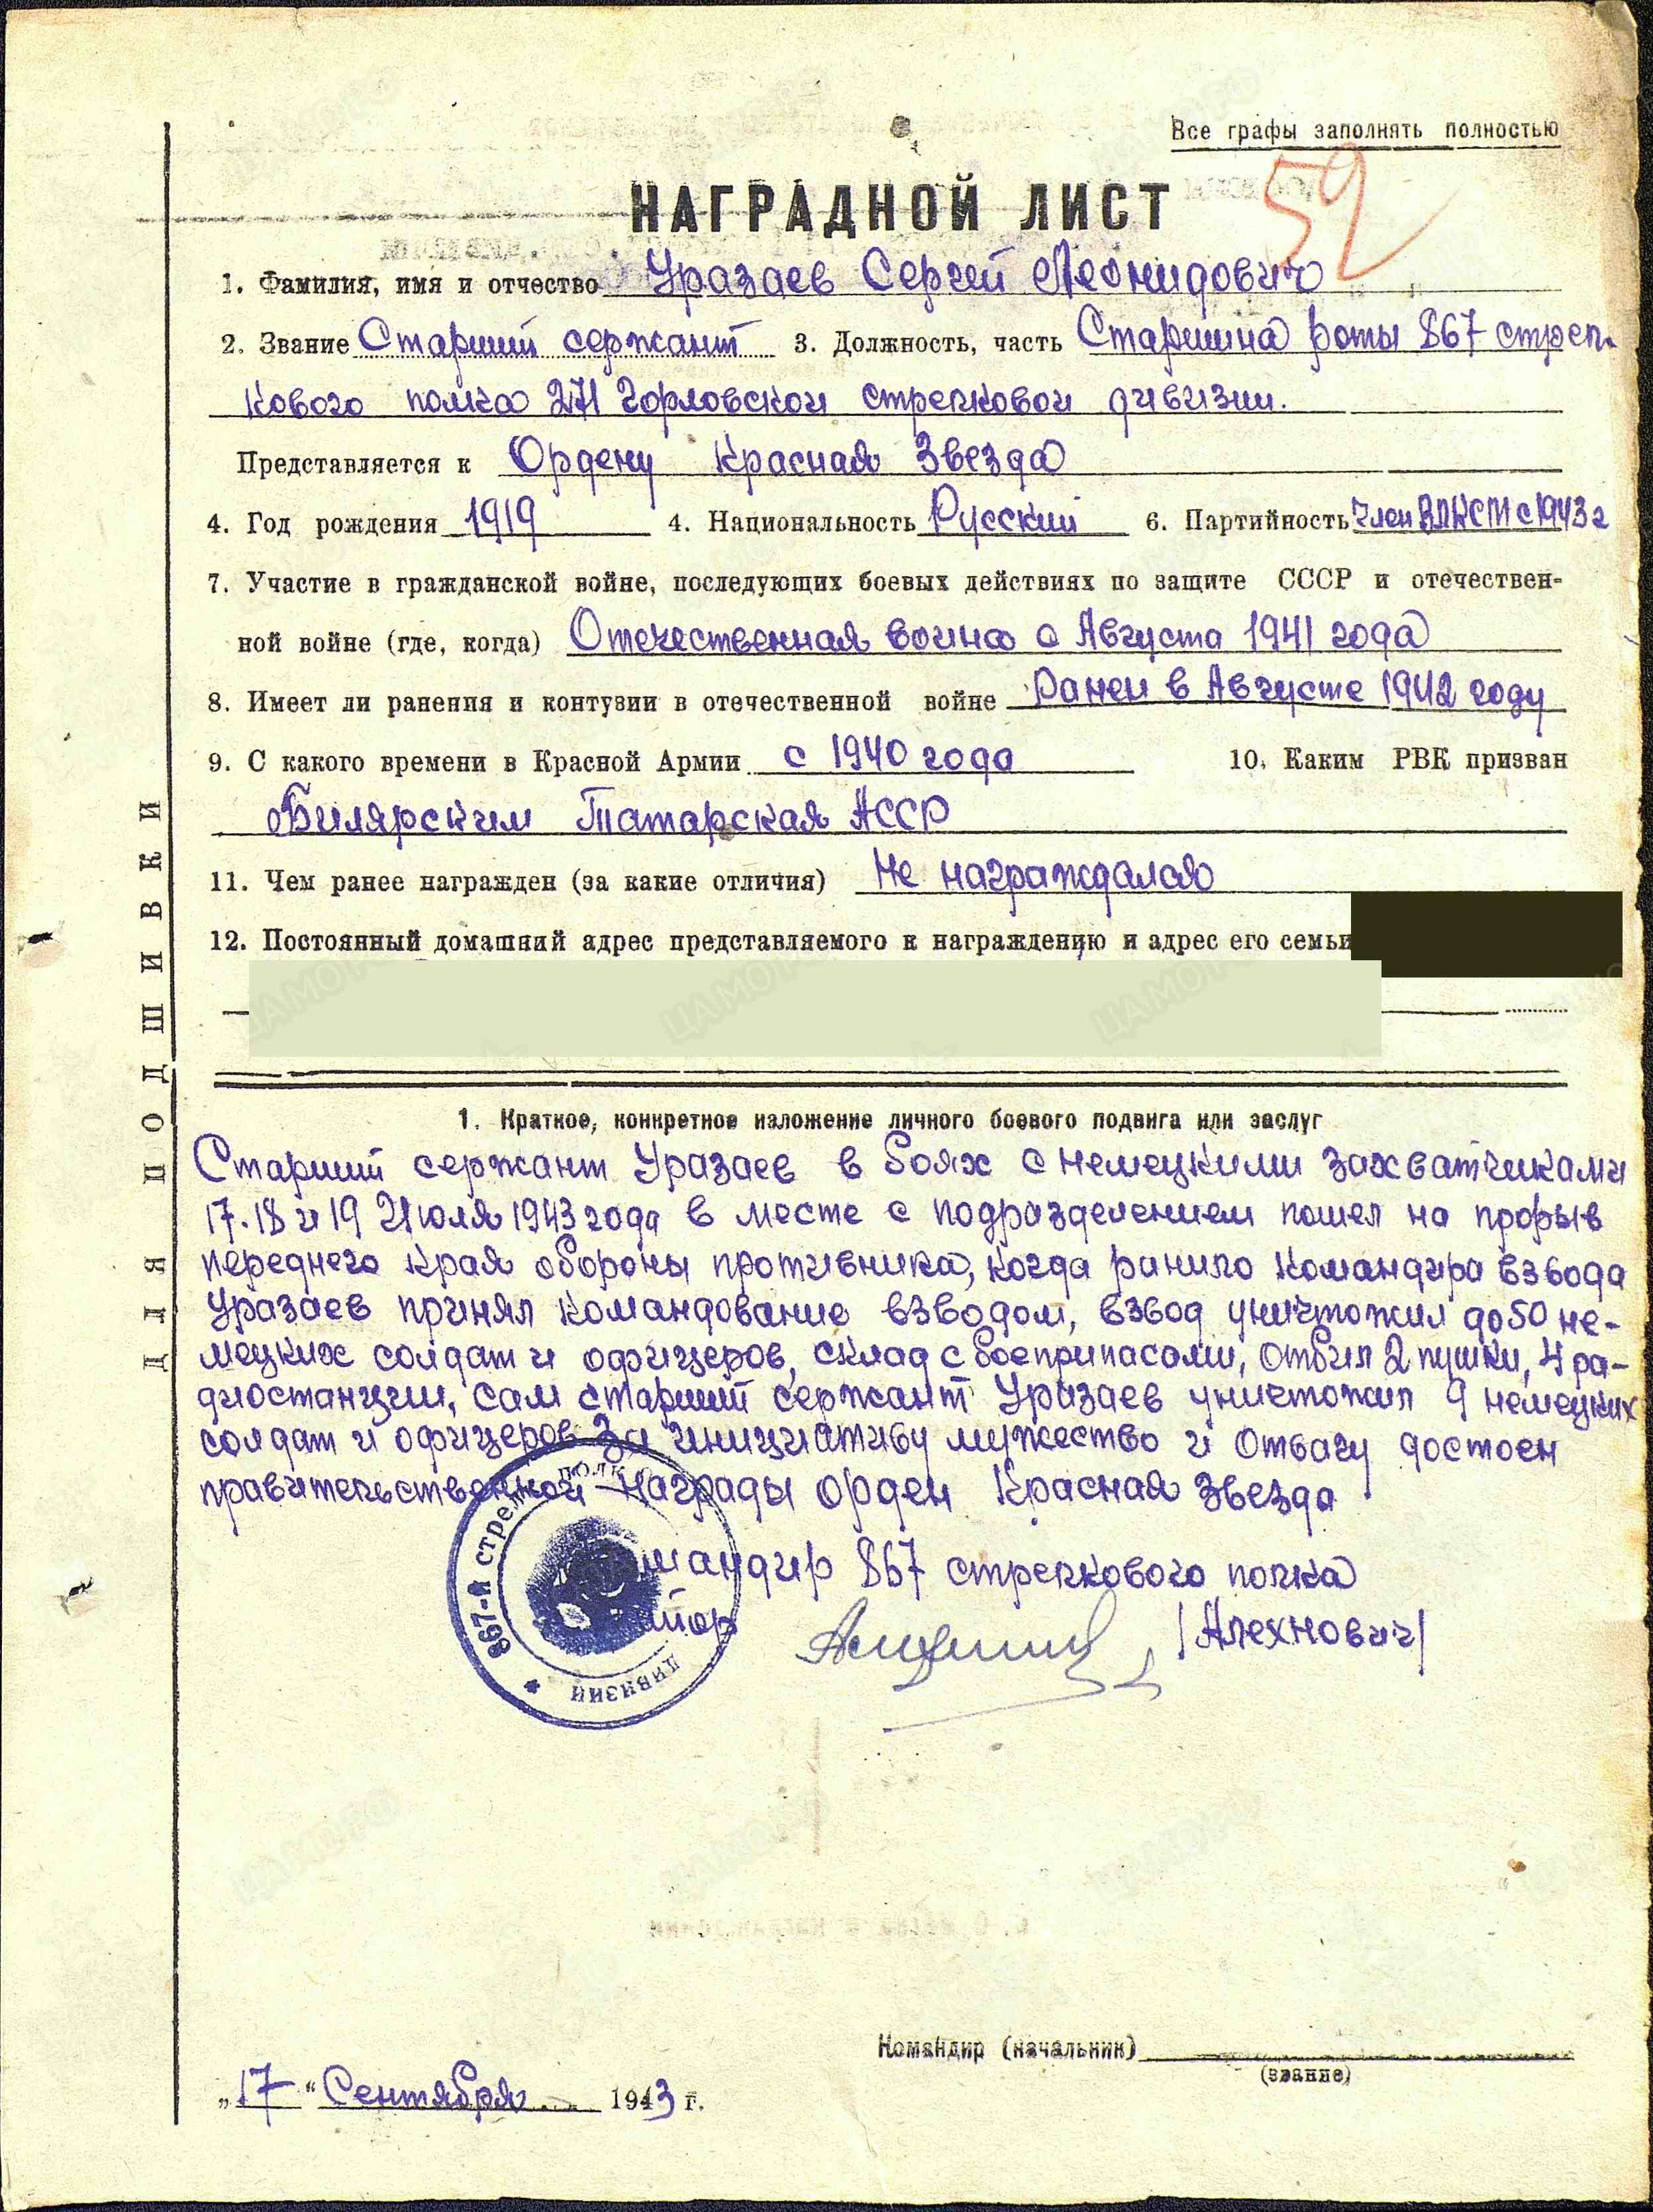 Все графы заполнять полностью
52
НАГРАДНОЙ ЛИСТ
1. Фамилия, имя и отчество Уразаев Сергей Леонидович
2. Звание Старший сержант 3. Должность, часть Старшина роты 867 стрел-
кового полка 271 Горловской стрелковой дивизии.
Представляется к Ордену Красная Звезда
4. Год рождения 1919 4. Национальность Русский 6. Партийность Член ВЛКСМ с 1943 г
7. Участие в гражданской войне, последующих боевых действиях по защите СССР и отечествен-
ной войне (где, когда) Отечественная война с Августа 1941 года
8. Имеет ли ранения и контузии в отечественной войне Ранен в Августе 1942 году
9. С какого времени в Красной Армии с 1940 года 10. Каким РВК призван
Билярским Татарская АССР
11. Чем ранее награжден (за какие отличия) Не награждался
12. Постоянный домашний адрес представляемого к награждению и адрес его семьи
1. Краткое, конкретное изложение личного боевого подвига или заслуг
Старший сержант Уразаев в боях с немецкими захватчиками
17.18 и 19 Июля 1943 года в месте с подразделением пошел на прорыв
переднего края обороны противника, когда ранило командира взвода
Уразаев принял командование взводом, взвод уничтожил до 50 не-
мецких солдат и офицеров, склад с боеприпасами, отбил 2 пушки, 4 ра-
диостанции, сам старший сержант Уразаев уничтожил 9 немецких
солдат и офицеров За инициативу мужество и отвагу достоен
правительственной награды орден Красная Звезда
мандир 867 стрелкового полка
/Алехнович/
867-й стрел полк
дивизии
Командир (начальник)
(звание)
„17“ Сентября 1943 г.
ДЛЯ ПОДШИВКИ
ЦАМО РФ